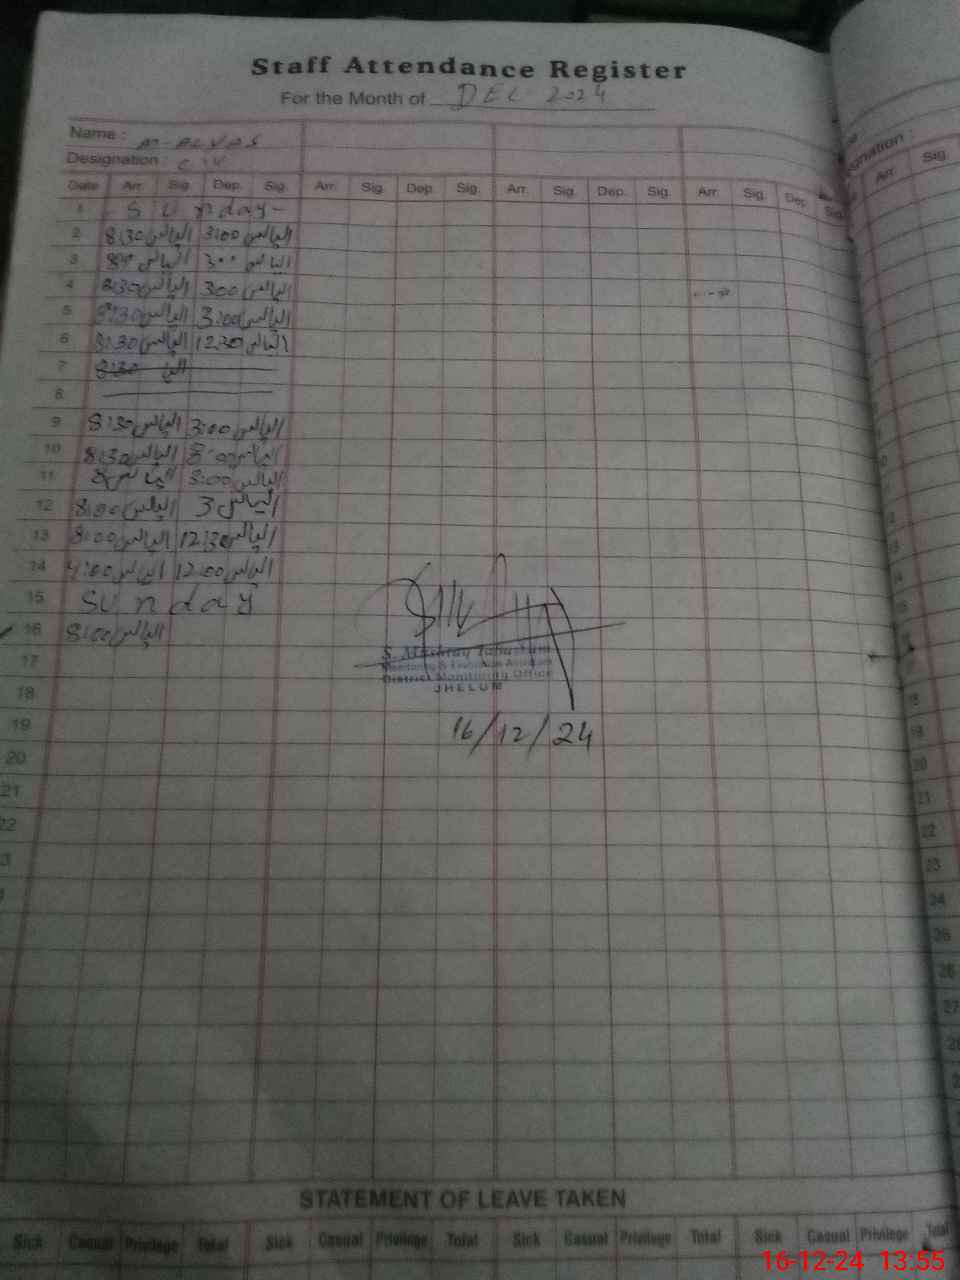 Staff Attendance Register
For the Month of DEC 2024
Name : M-ALYAS
Designation :
Date Arr. Sig. Dep. Sig. Arr. Sig. Dep. Sig. Arr. Sig. Dep. Sig. Arr. Sig. Dep. Sig.
1 - Sunday -
2 8:30 الیاس 3:00 الیاس
3 الیاس 3:00 الیاس
4 8:30 الیاس 3:00 الیاس
5 8:30 الیاس 3:00 الیاس
6 8:30 الیاس 12:30 الیاس
7 8:30 الیا
8
9 8:30 الیاس 3:00 الیاس
10 8:30 الیاس 3:00 الیاس
11 8 الیاس 3:00 الیاس
12 8:00 الیاس 3 الیاس
13 8:00 الیاس 12:30 الیاس
14 الیاس 12:00 الیاس
15 Sunday
16 8:00 الیاس
17
18
19
20
21
22
S. Mushtaq Tabassum
Monitoring & Evaluation Assistant
District Monitoring Office
JHELUM
16/12/24
gnation :
Arr. Sig.
18
19
20
21
22
23
24
25
26
27
STATEMENT OF LEAVE TAKEN
Sick Casual Privilege Total Sick Casual Privilege Total Sick Casual Privilege Total Sick Casual Privilege Total
16-12-24 13:55